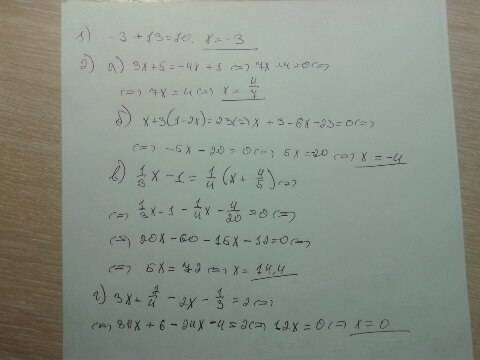 1) -3 +13=10. x=-3
2) а) 3x+5=-4x+1 <=> 7x+4=0 <=>
<=> 7x=4 <=> x=4/7
б) x+3(1-2x)=23 <=> x+3-6x-23=0 <=>
<=> -5x-20=0 <=> 5x=20 <=> x=-4
в) 1/3x-1=1/4(x+4/5) <=>
<=> 1/3x-1-1/4x-4/20=0 <=>
<=> 20x-60-15x-12=0 <=>
<=> 5x=72 <=> x=14,4
г) 3x+2/4-2x-1/3=2 <=>
<=> 36x+6-24x-4=2 <=> 12x=0 <=> x=0